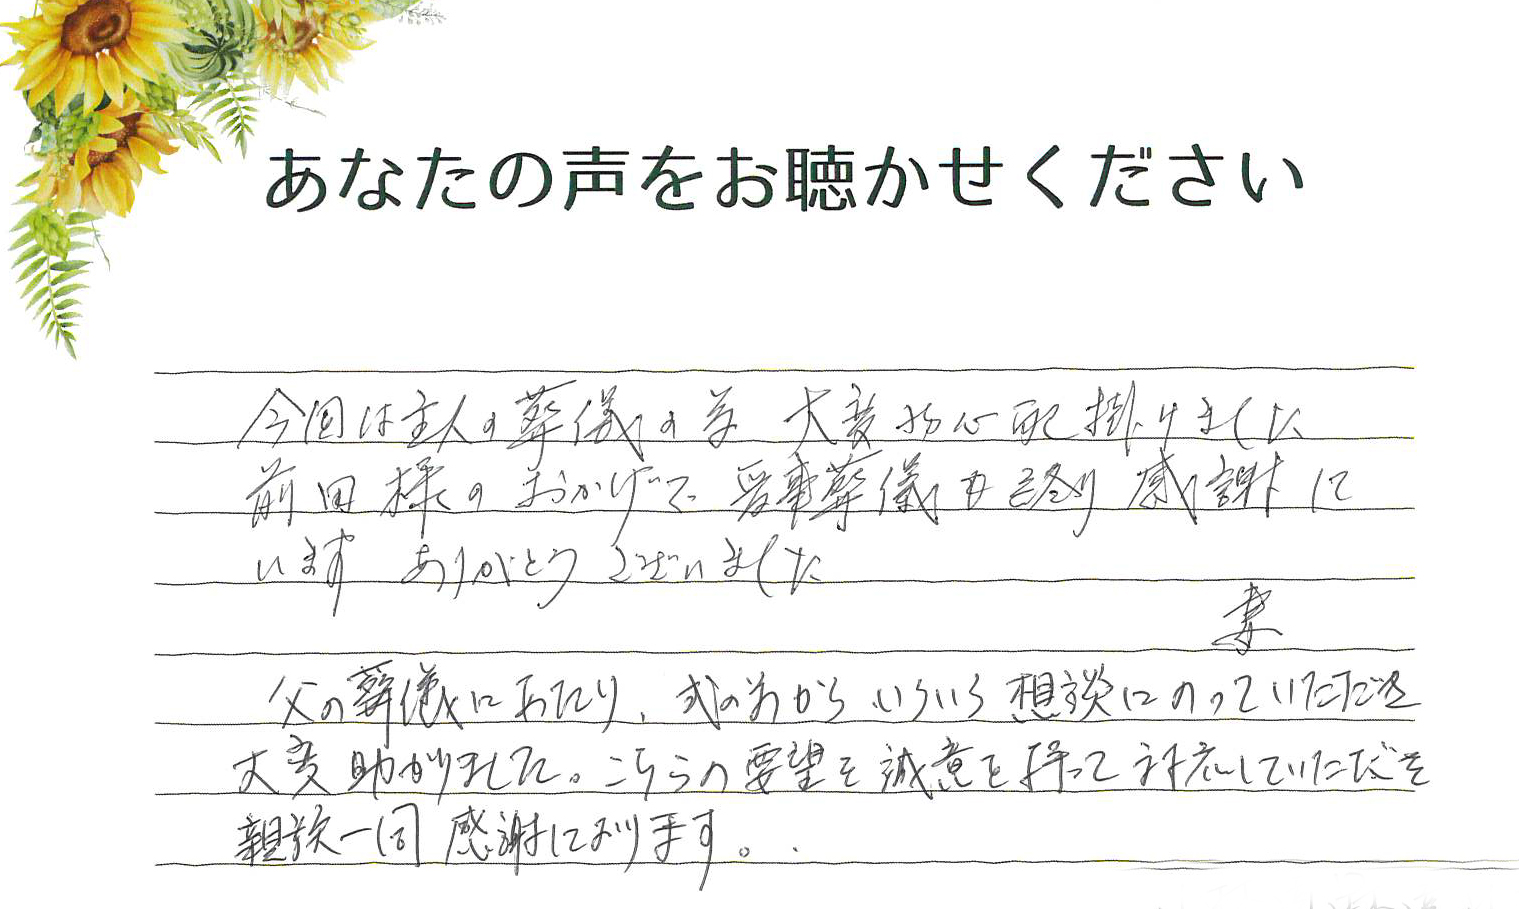 あなたの声をお聴かせください
今回は主人の葬儀の為 大変お心配掛けました
前田様のおかげで 無事葬儀も終り 感謝して
います ありがとうございました
妻
父の葬儀にあたり、式の前からいろいろ相談にのっていただき
大変助かりました。こちらの要望を誠意を持って対応していただき
親族一同 感謝しております。